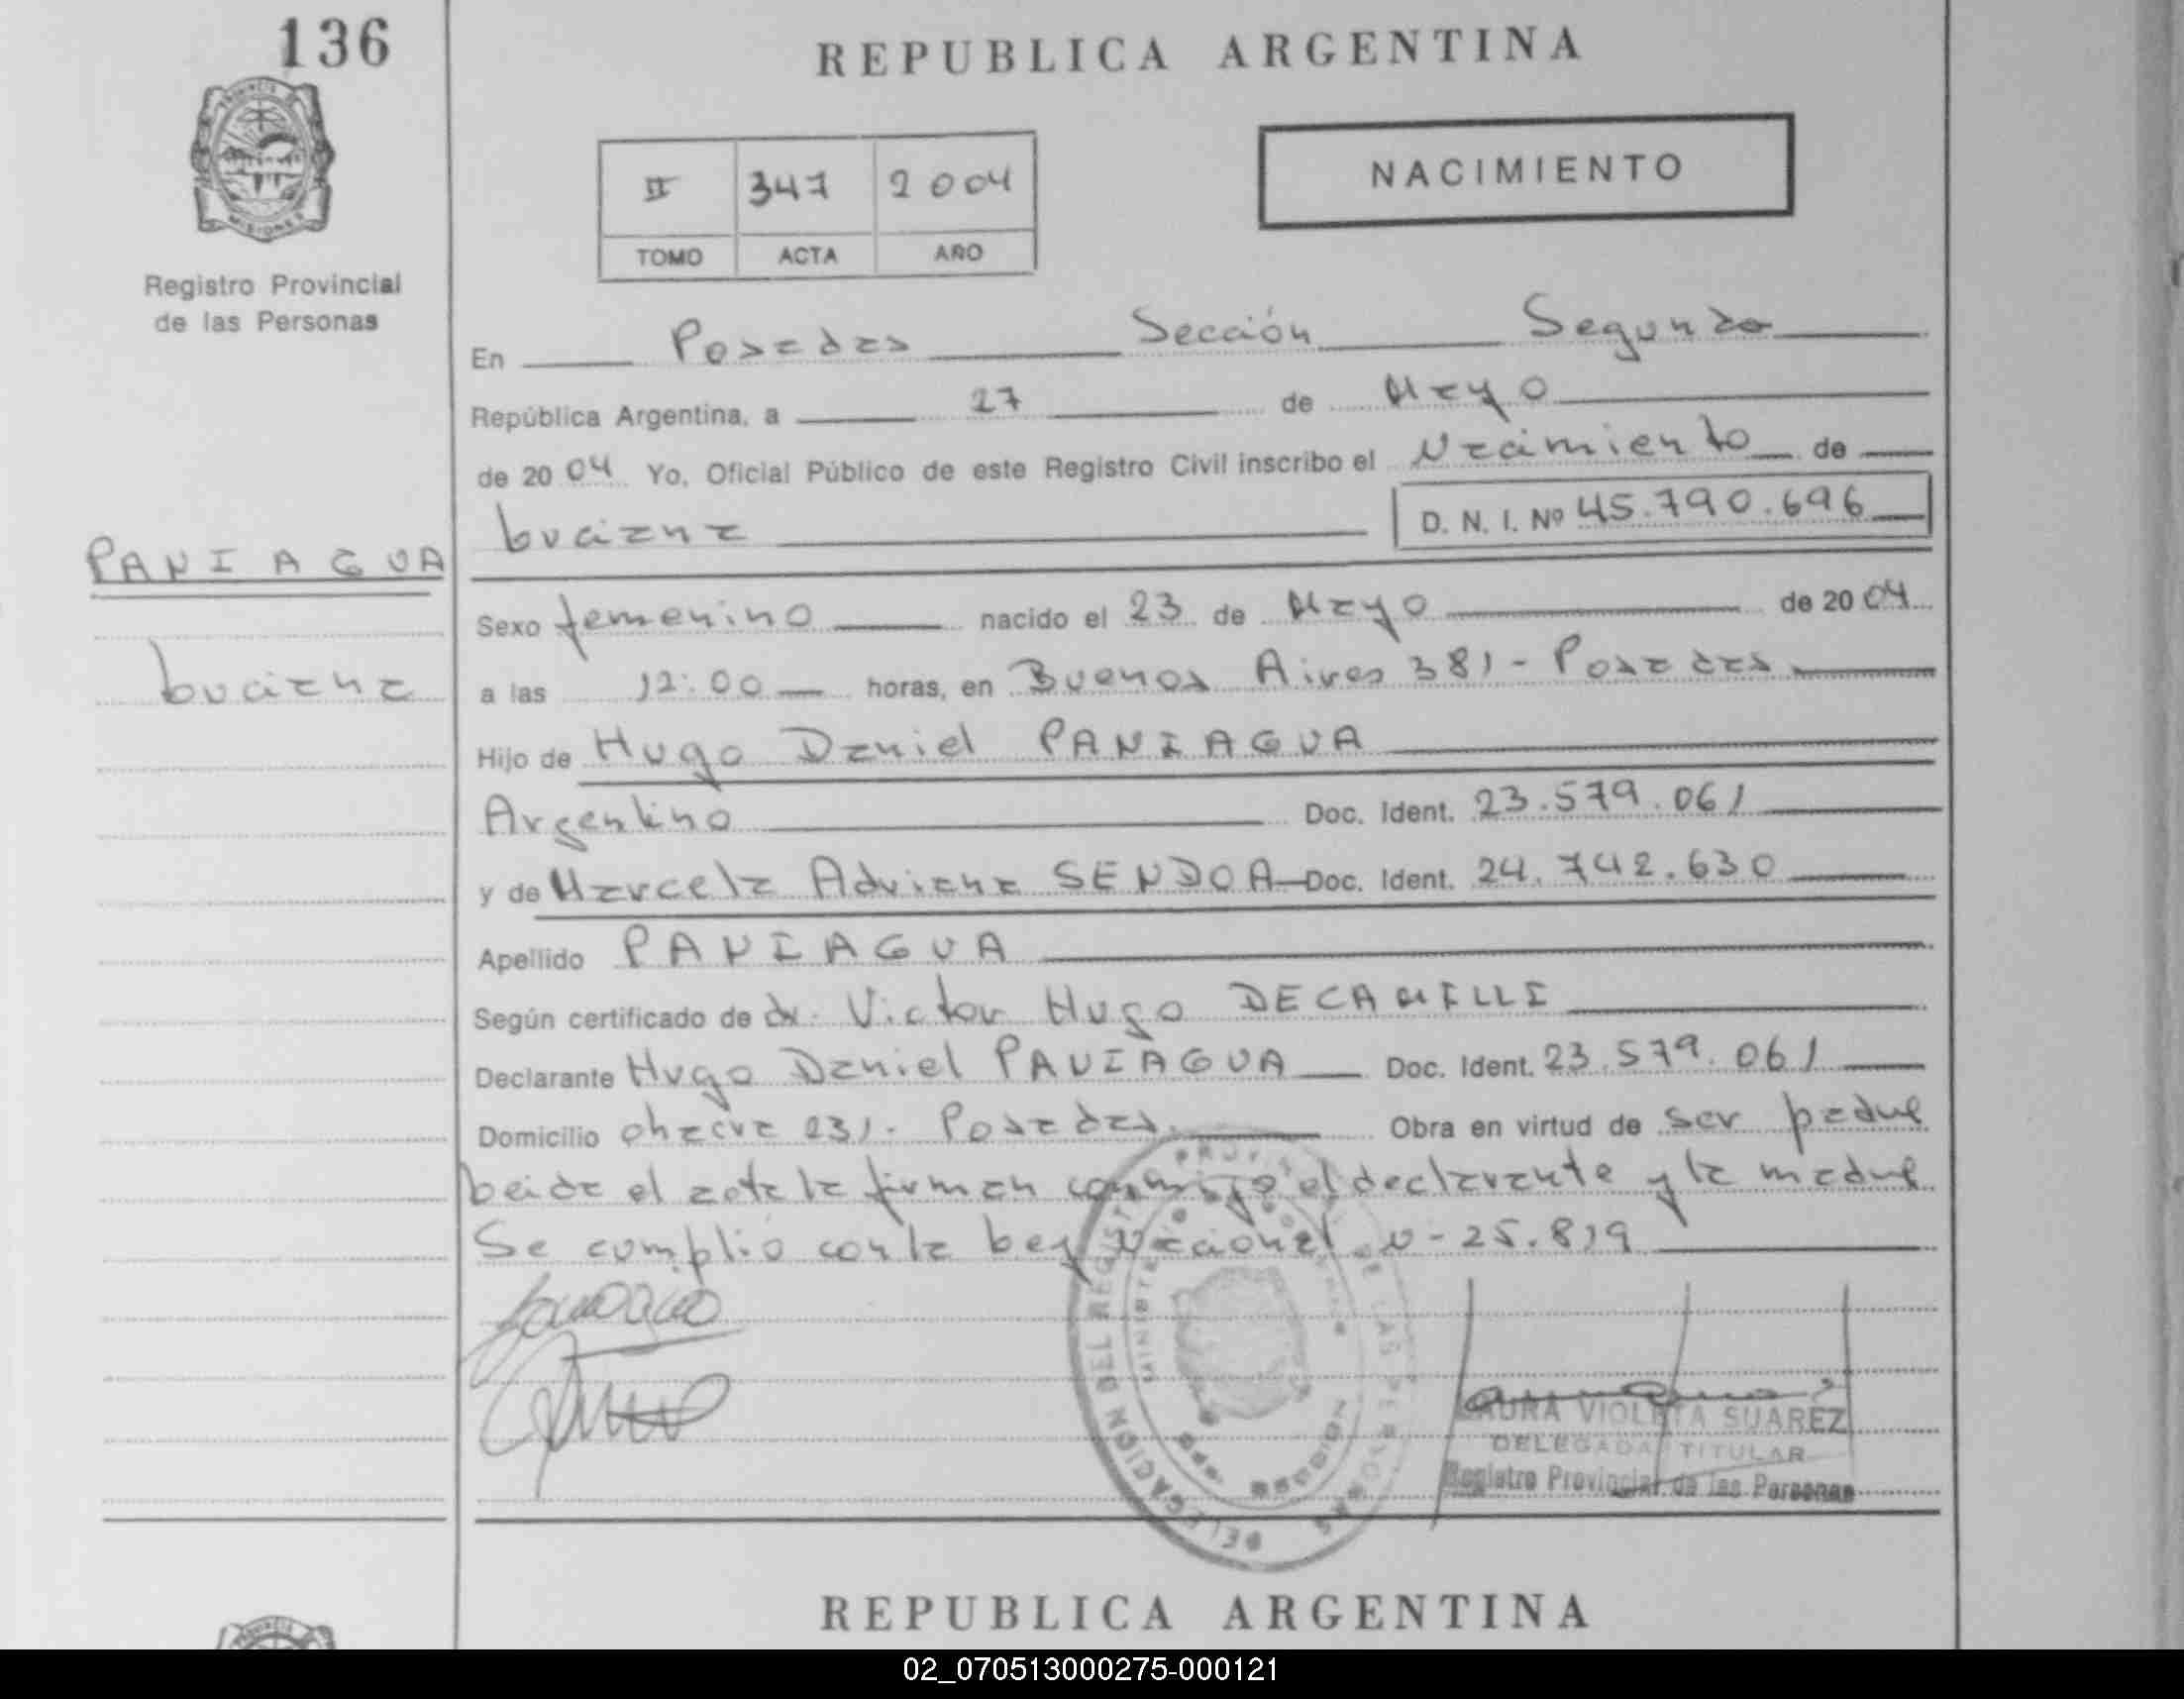 136
REPUBLICA ARGENTINA
NACIMIENTO
II 347 2004
TOMO ACTA AÑO
PROVINCIA DE
MISIONES
Registro Provincial
de las Personas
En Posadas Sección Segunda
República Argentina, a 27 de Mayo
de 2004 Yo, Oficial Público de este Registro Civil inscribo el Nacimiento de
Luciana D. N. I. Nº 45.790.696
PANIAGUA
Luciana
Sexo femenino nacido el 23 de Mayo de 2004
a las 12:00 horas, en Buenos Aires 381 - Posadas
Hijo de Hugo Daniel PANIAGUA
Argentino Doc. Ident. 23.579.061
y de Marcela Adriana SENDOA Doc. Ident. 24.742.630
Apellido PANIAGUA
Según certificado de dr. Victor Hugo DECAMILLI
Declarante Hugo Daniel PANIAGUA Doc. Ident. 23.579.061
Domicilio Chacra 231 - Posadas Obra en virtud de ser padre
Leida el acta la firman conmigo el declarante y la madre
Se cumplió con la Ley Nacional N - 25.819
DELEGACION DEL REGISTRO PROVINCIAL DE LAS PERSONAS
MINISTERIO DE GOBIERNO
MISIONES
LAURA VIOLETA SUAREZ
DELEGADA TITULAR
Registro Provincial de las Personas
REPUBLICA ARGENTINA
02_070513000275-000121